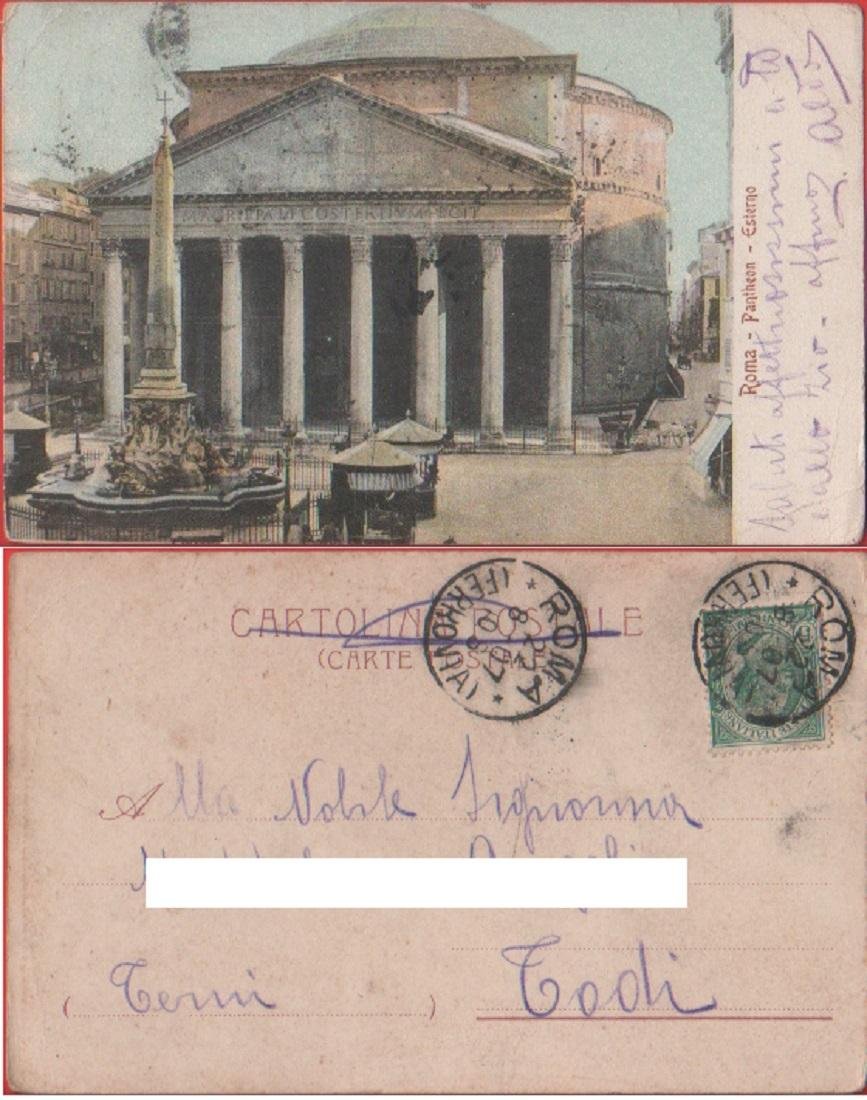 M·AGRIPPA·L·F·COS·TERTIVM·FECIT
Roma - Pantheon - Esterno
Saluti affettuosissimi a te
e allo zio - affmo
CARTOLINA POSTALE
(CARTE POSTALE)
ROMA
(FERROVIA)
8 07
ROMA
(FERROVIA)
07
Alla Nobile Signorina
Todi
(Terni)